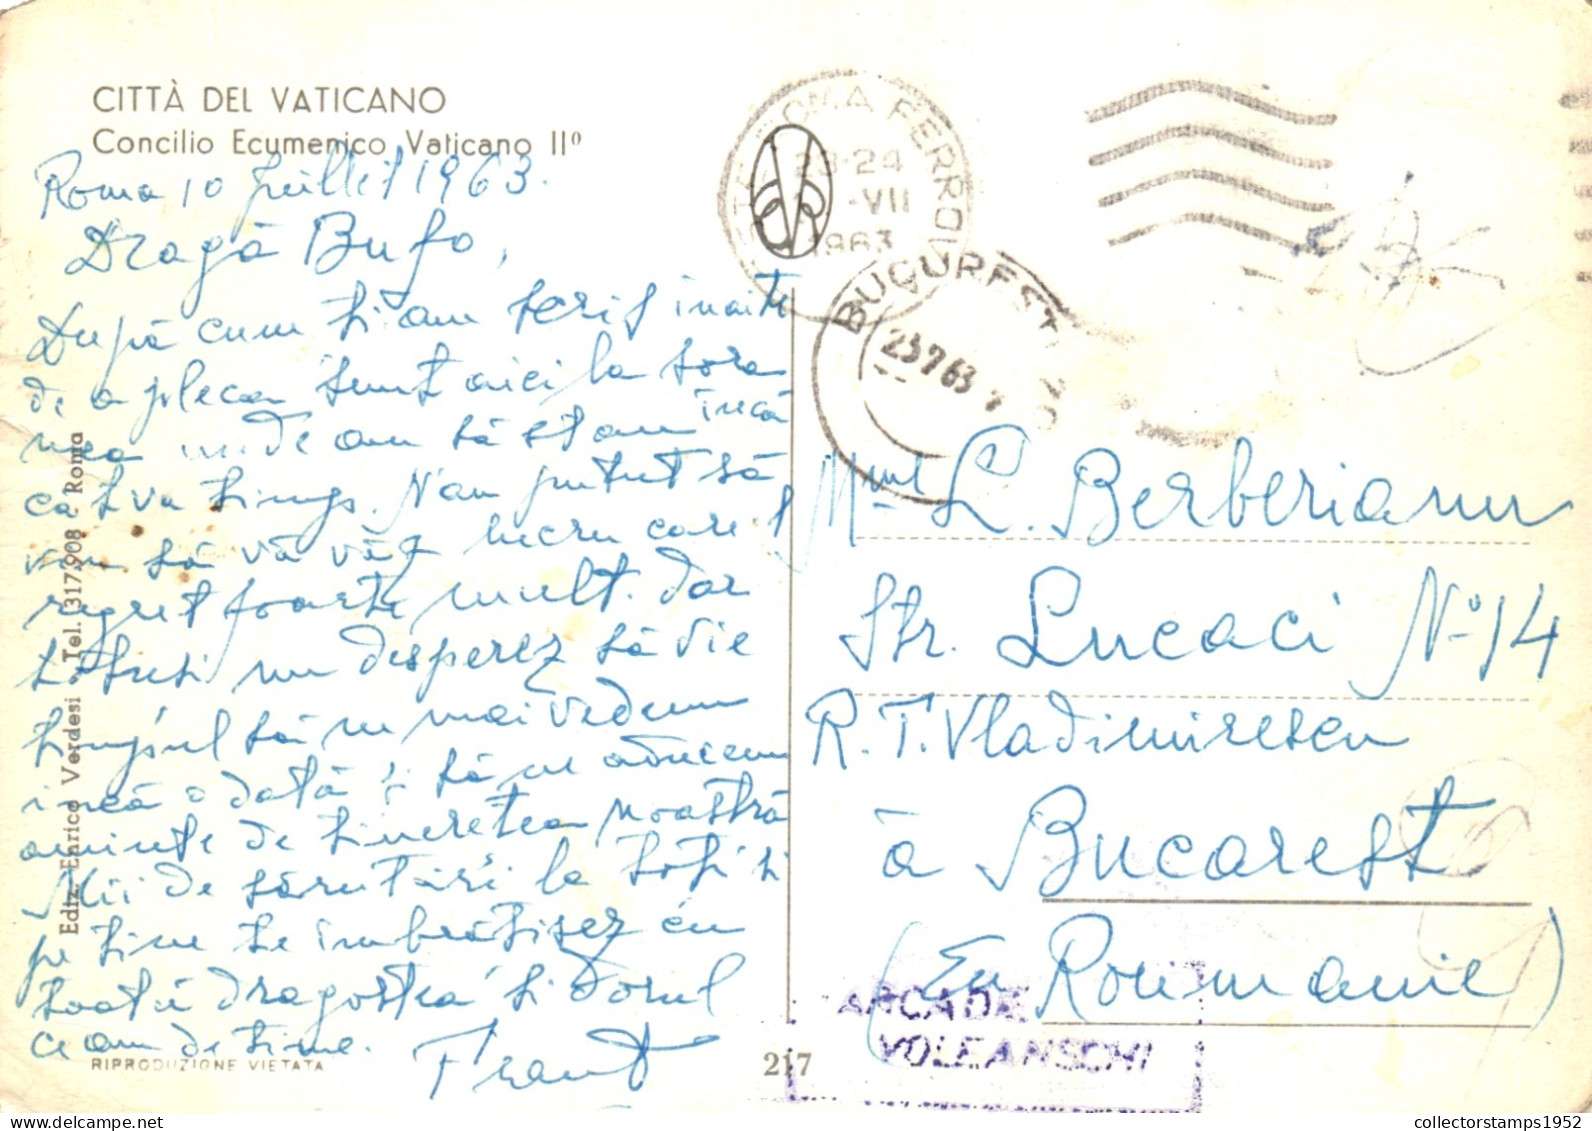 CITTÀ DEL VATICANO
Concilio Ecumenico Vaticano IIº
Roma 10 Juillet 1963.
Dragă Bufo,
După cum ți-am scris înainte
de a pleca sunt aici la sora
mea unde am să stau încă
câtva timp. N'am putut să
vin să vă văz lucru care îl
regret foarte mult. Dar
totuși nu desperez să vie
timpul să ne mai vedem
încă o dată și să ne aducem
aminte de tinerețea noastră
Mii de sărutări la toți și
pe tine te îmbrățișez cu
toată dragostea și dorul
ce am de tine.
RIPRODUZIONE VIETATA
Ediz. Enrico Verdesi - Tel. 317.908 - Roma
217
ROMA FERROVIA
23-24
-VII
1963
BUCUREST
23 7 63
Mme L. Berberianu
Str. Lucaci Nº 14
R. T. Vladimirescu
à Bucarest
(En Roumanie)
ARCADIE
VOLFANSCHI
collectorstamps1952